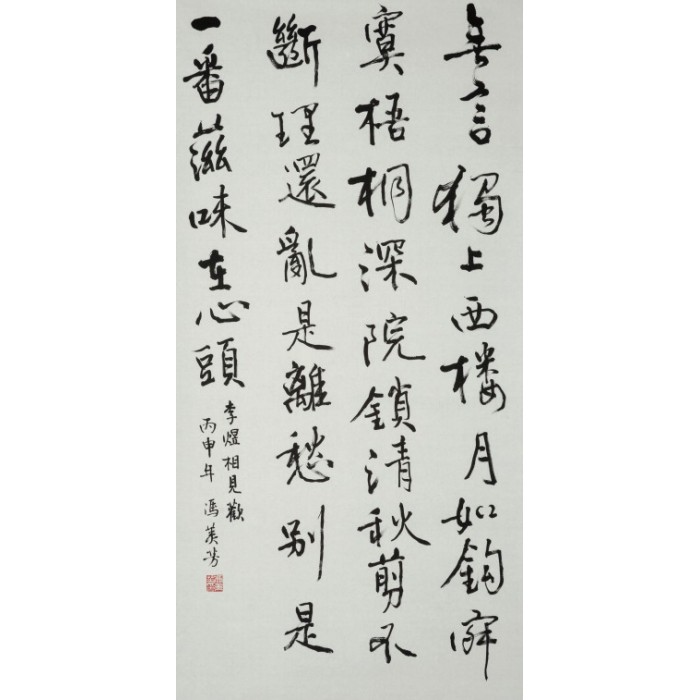 無言獨上西樓月如鉤寂
寞梧桐深院鎖清秋剪不
斷理還亂是離愁别是
一番滋味在心頭
李煜相見歡
丙申年 馮芳